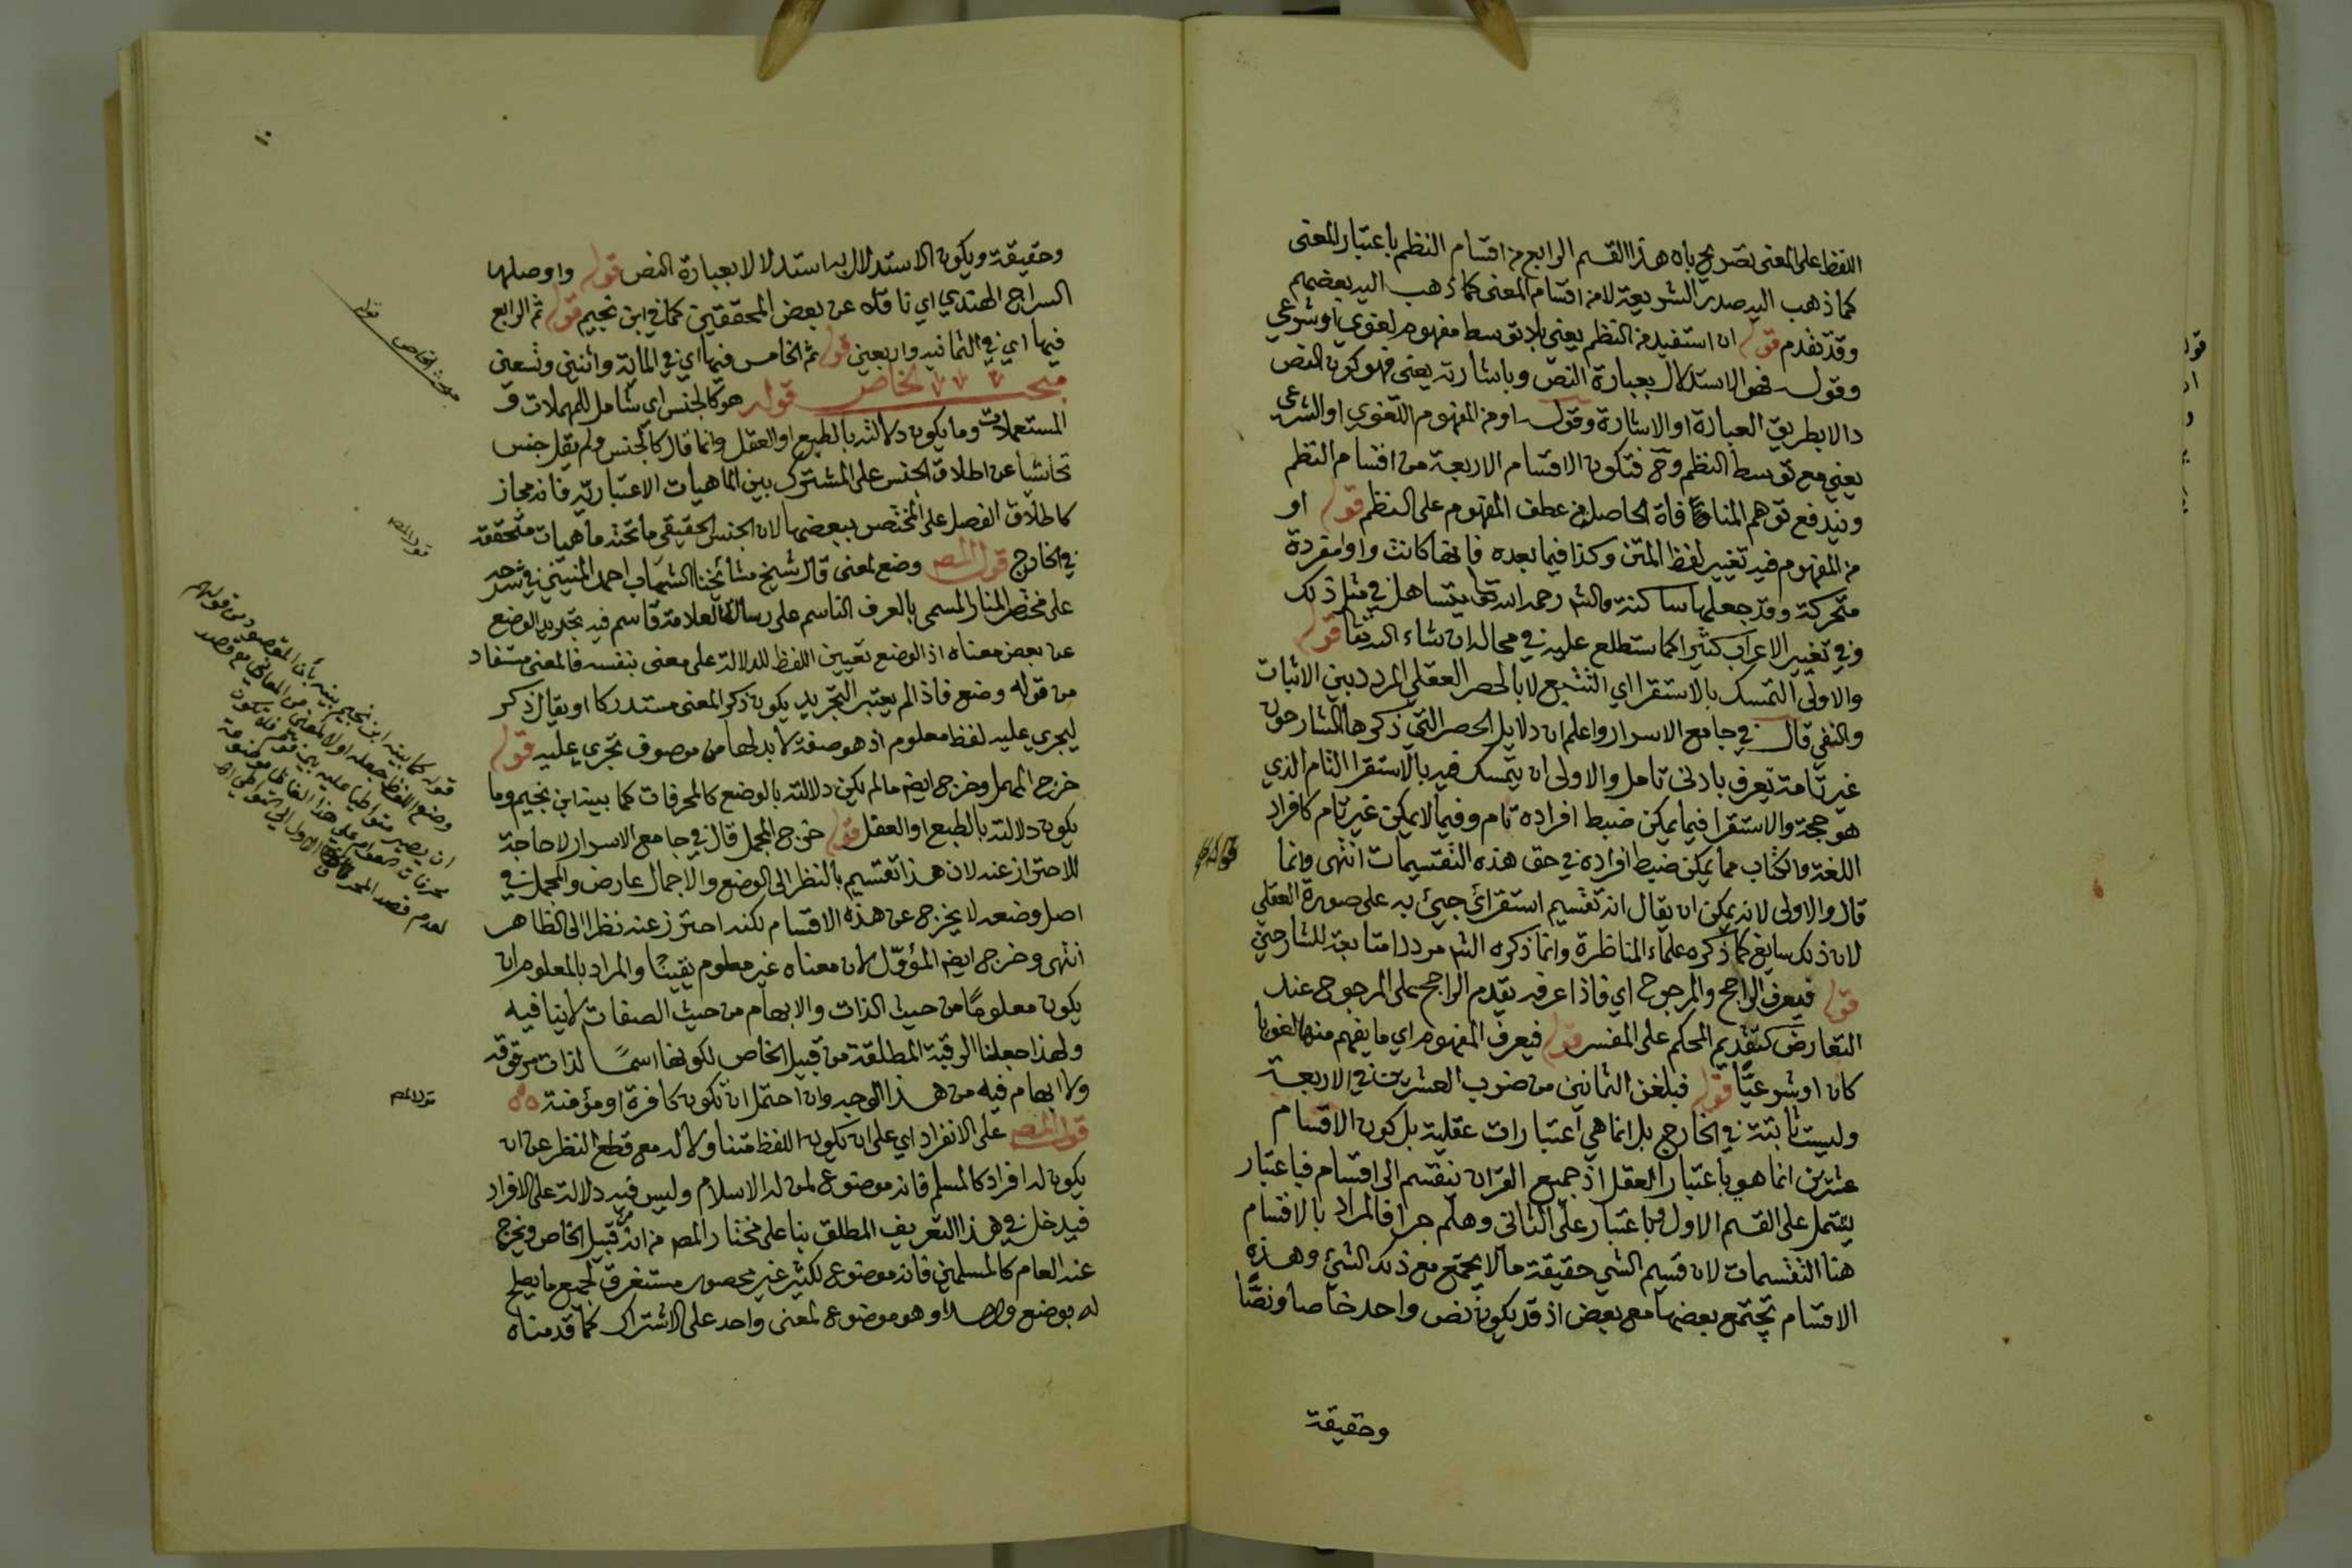 اللفظ على المعنى تصريح بان هذا القسم الرابع من اقسام النظم باعتبار المعنى
كما ذهب اليه صدر الشريعة لا من اقسام المعنى كما ذهب اليه بعضهم
وقد تقدم قوله ان استفيد من النظم يعني بلا توسط مفهوم لغوي او شرعي
وقوله فهو الاستدلال بعبارة النص وباشارته يعني فهو كون النص
دالا بطريق العبارة او الاشارة وقوله او من المفهوم اللغوي او الشرعي
يعني مع توسط النظم وح فتكون الاقسام الاربعة من اقسام النظم
ويندفع توهم المنافاة الحاصل من عطف المفهوم على النظم قوله او
من المفهوم فيه تغيير لفظ المتن وكذا فيما بعده فانها كانت واوا مفردة
متحركة وقد جعلها ساكنة والش رحمه الله تعا يتساهل في مثل ذلك
وفي تغيير الاعراب كثيرا كما ستطلع عليه في محاله ان شاء الله تعا قوله
والاولى التمسك بالاستقرا اي التتبع لا بالحصر العقلي المردد بين الاثبات
والنفي قال في جامع الاسرار واعلم ان دلايل الحصر التي ذكرها الشارحون
غير تامة تعرف بادنى تامل والاولى ان يتمسك فيه بالاستقرا التام الذي
هو حجة والاستقرا فيما يمكن ضبط افراده تام وفيما لا يمكن غير تام كافراد
اللغة والكتاب مما يمكن ضبط افراده في حق هذه التقسيمات انتهى وانما
قال والاولى لانه يمكن ان يقال انه تقسيم استقرائي جيئ به على صورة العقلي
لان ذلك سايغ كما ذكره علماء المناظرة وانما ذكره الش مرددا متابعة للشارحين
قوله فيعرف الراجح والمرجوح اي فاذا عرف يقدم الراجح على المرجوح عند
التعارض كتقديم المحكم على المفسر قوله فيعرف المفهوم اي ما يفهم منها لغويا
كان او شرعيا قوله فبلغن الثمانين من ضرب العشرين في الاربعة
وليست ثابتة في الخارج بل انما هي اعتبارات عقلية بل كون الاقسام
عشرين انما هو باعتبار العقل اذ جميع القران ينقسم الى اقسام فباعتبار
يشتمل على القسم الاول وباعتبار على الثاني وهلم جرا فالمراد بالاقسام
هنا التقسيمات لان قسيم الشي حقيقة ما لا يجتمع مع ذلك الشيء وهذه
الاقسام تجتمع بعضها مع بعض اذ قد يكون نص واحد خاصا ونصا
وحقيقة
وحقيقة ويكون الاستدلال به استدلالا بعبارة النص قوله واوصلها
السراج الهندي اي ناقلا عن بعض المحققين كما في ابن نجيم قوله ثم الرابع
فيها اي في الثمانية واربعين قوله ثم الخامس فيها اي في المائة واثنين وتسعين
مبحث الخاص قوله هو كالجنس اي شامل للمهملات و
المستعملات وما يكون دلالته بالطبع او العقل وانما قال كالجنس ولم يقل جنس
تحاشيا عن اطلاق الجنس على المشترك بين الماهيات الاعتبارية فانه مجاز
كاطلاق الفصل على المختص ببعضها لان الجنس الحقيقي ما تحته ماهيات متحققة
في الخارج قول المص وضع لمعنى قال شيخ مشائخنا الشهاب احمد المنيني في شرحه
على مختصر المنار المسمى بالعرف الناسم على رسالة العلامة قاسم فيه تجريد الوضع
عن بعض معناه اذ الوضع تعيين اللفظ للدلالة على معنى بنفسه فالمعنى مستفاد
من قوله وضع فاذا لم يعتبر التجريد يكون ذكر المعنى مستدركا او يقال ذكر
ليجري عليه لفظ معلوم اذ هو صفة لا بد لها من موصوف تجري عليه قوله
خرج المهمل وخرج ايض ما لم يكن دلالته بالوضع كالمحرفات كما بينه ابن نجيم وما
يكون دلالته بالطبع او العقل قوله خرج المجمل قال في جامع الاسرار لا حاجة
للاحتراز عنه لان هذا تقسيم بالنظر الى الوضع والاجمال عارض والمجمل في
اصل وضعه لا يخرج عن هذه الاقسام لكنه احترز عنه نظرا الى الظاهر
انتهى وخرج ايض المؤول لان معناه غير معلوم يقينا والمراد بالمعلوم ان
يكون معلوما من حيث الذات والابهام من حيث الصفات لا ينافيه
ولهذا جعلنا الرقبة المطلقة من قبيل الخاص لكونها اسما لذات مرقوقة
ولا ابهام فيه من هذا الوجه وان احتمل ان تكون كافرة او مؤمنة
قول المص على الانفراد اي على ان يكون اللفظ متناولا له مع قطع النظر عن ان
يكون له افراد كالمسلم فانه موضوع لمن له الاسلام وليس فيه دلالة على الافراد
فيدخل في هذا التعريف المطلق بنا على مختار المص من انه من قبيل الخاص ويخرج
عنه العام كالمسلمين فانه موضوع لكثير غير محصور مستغرق لجميع ما يصلح
له بوضع واحد او هو موضوع لمعنى واحد على الاشتراك كما قدمناه
١٠
قوله
مبحث الخاص
قول المص
قوله كما بينه ابن نجيم بينه بأن المقصود من قولهم
وضع اللفظ جعله اولا لمعنى من المعاني مع قصد
ان يصير متواطيا عليه بين قوم
قول المص